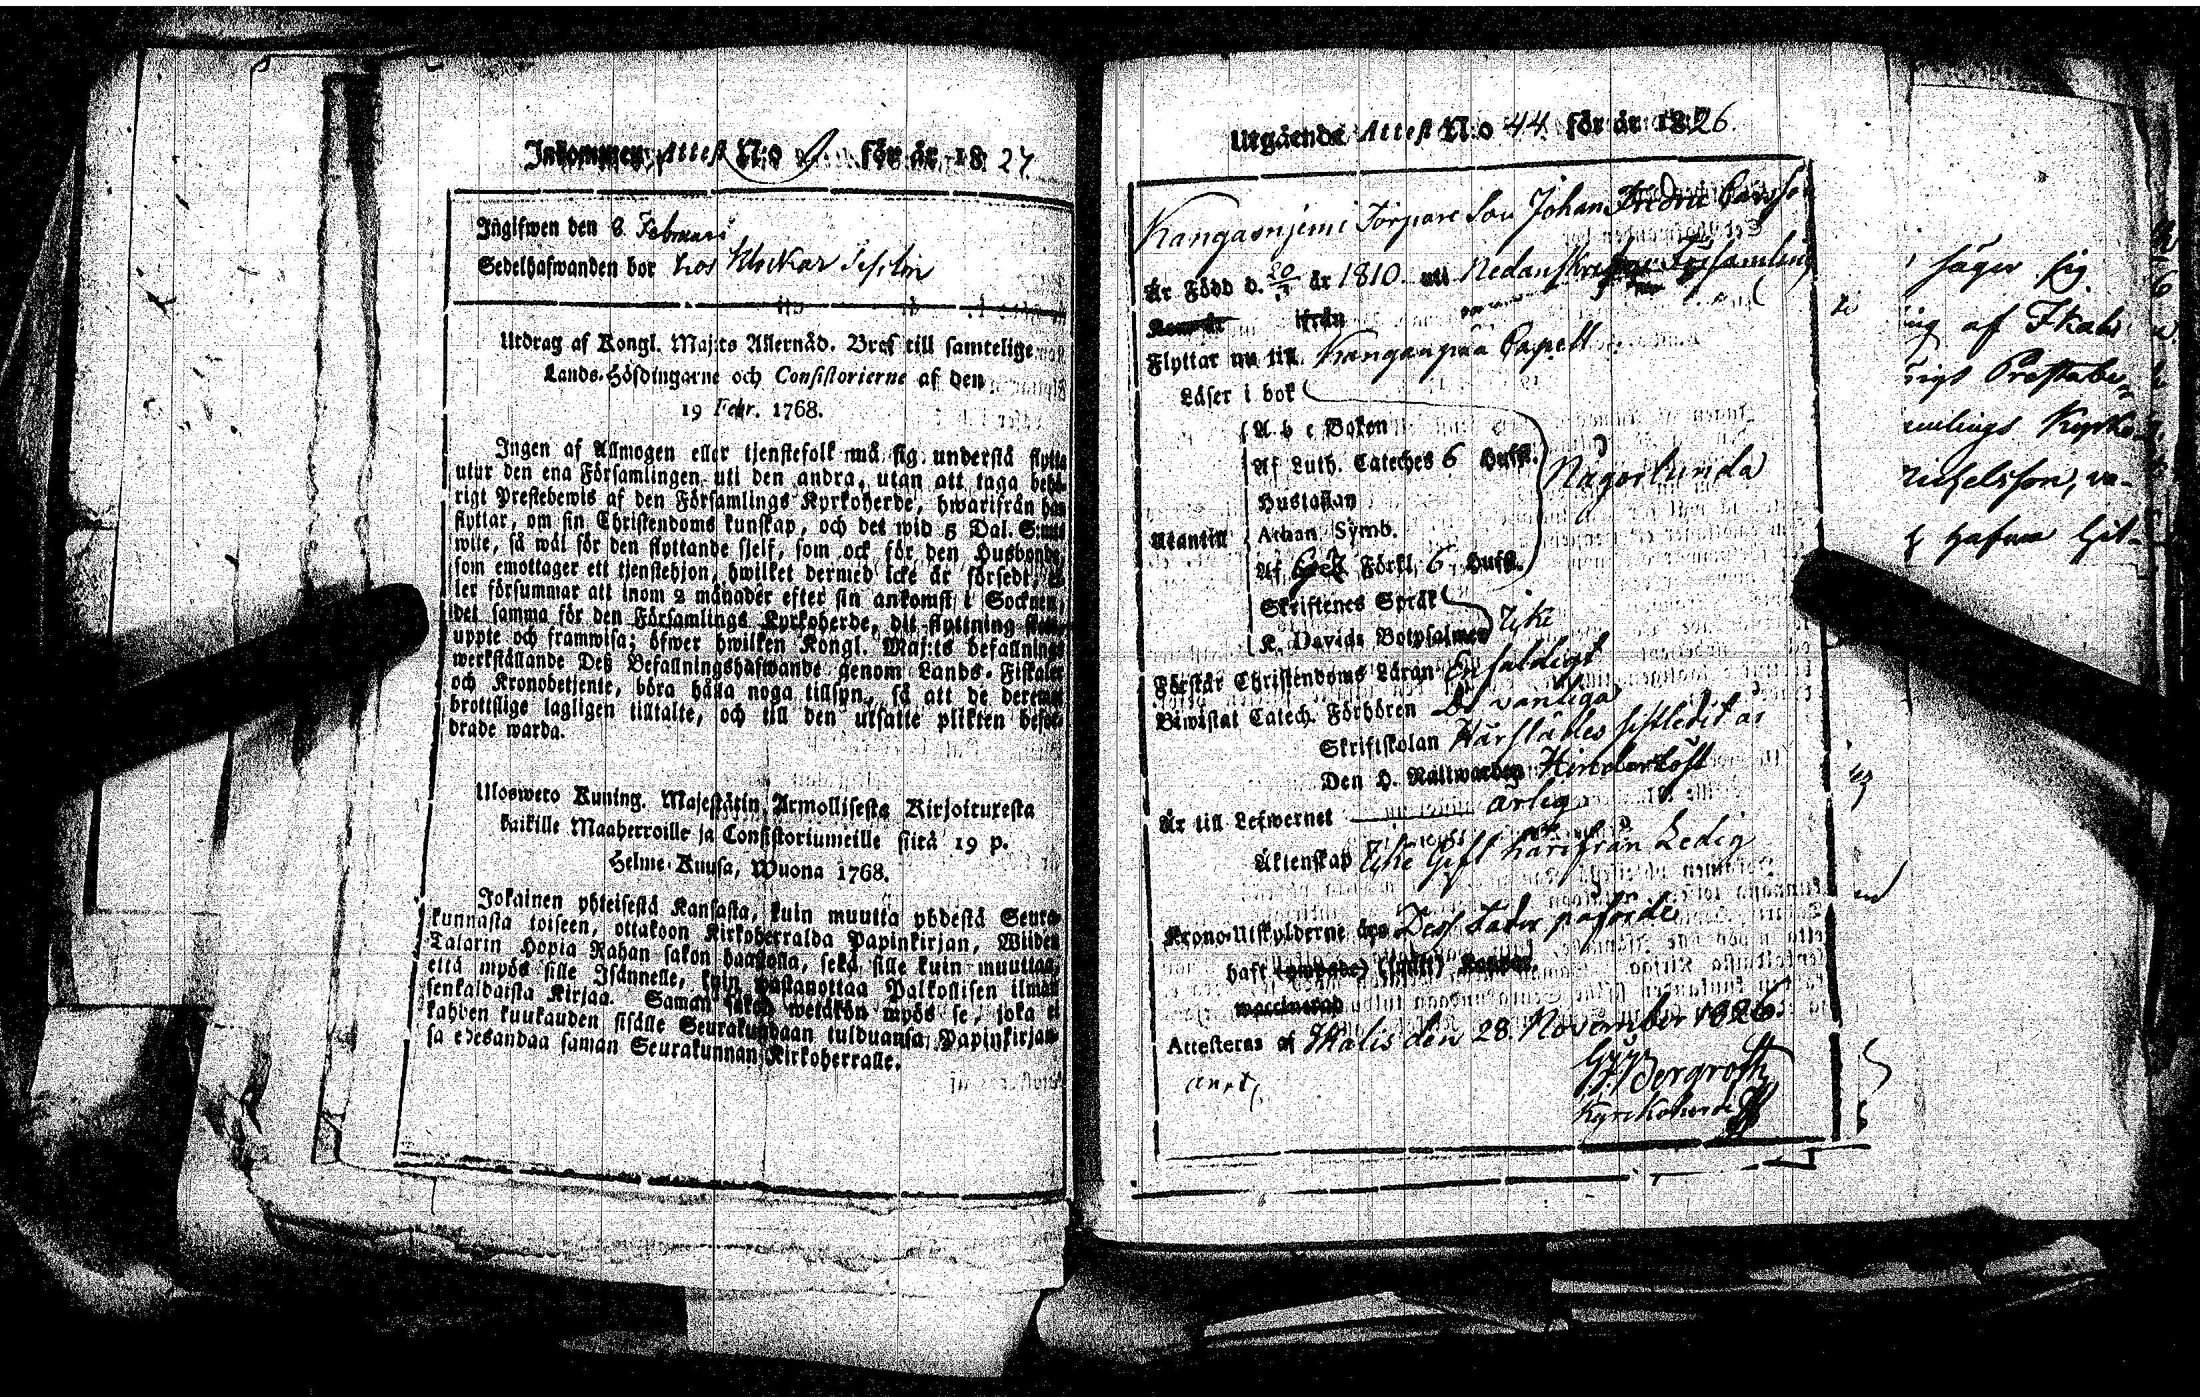 Inkommen Attest N:o för år 1827
Ingifwen den 8 Februari
Sedelhafwanden bor hos Klockar
Utdrag af Kongl. Maj:ts Allernåd. Bref till samtelige
Lands-Höfdingarne och Consistorierne af den
19 Febr. 1768.
Ingen af Allmogen eller tjenstefolk må sig understå flytta
utur den ena Församlingen uti den andra, utan att taga behö-
rigt Prestebewis af den Församlings Kyrkoherde, hwarifrån han
flyttar, om sin Christendoms kunskap, och det wid 5 Dal. S:mts
wite, så wäl för den flyttande sjelf, som ock för den Husbonde,
som emottager ett tjenstehjon, hwilket dermed icke är försedt, el-
ler försummar att inom 2 månader efter sin ankomst i Socknen,
det samma för den Församlings Kyrkoherde, dit flyttning sker,
uppte och framwisa; öfwer hwilken Kongl. Maj:ts befallnings
werkställande Deß Befallningshafwande genom Lands-Fiskaler
och Kronobetjente, böra hålla noga tillsyn, så att de deremot
brottslige lagligen tilltalte, och till den utsatte plikten befor-
drade warda.
Ulosweto Kuning. Majestätin Armollisesta Kirjoituxesta
kaikille Maaherroille ja Consistoriumeille siitä 19 p.
Helme-Kuusa, Wuona 1768.
Jokainen yhteisestä Kansasta, kuin muutta yhdestä Seura-
kunnasta toiseen, ottakoon Kirkoherralda Papinkirjan, Wiiden
Talarin Hopia Rahan sakon haastolla, sekä sille kuin muuttaa,
että myös sille Isännelle, kuin wastanottaa Palkollisen ilman
senkaldaista Kirjaa. Saman sakon wetäkön myös se, joka ei
kahden kuukauden sisälle Seurakundaan tulduansa, Papinkirjan-
sa edesandaa saman Seurakunnan Kirkoherralle.
Utgående Attest N:o 44. för år 1826.
Kangasniemi Torpare Son Johan Fredric
Är Född d. 20 år 1810. uti Nedanskrefne Församling
Kom år ifrån
Flyttar nu till Kangaanpää Capell
Läser i bok
A b c Boken
Af Luth. Cateches 6 Hufst.
Någorlunda
Hustaflan
Utantill Athan. Symb.
Af Förkl. 6 Hufst.
Skriftenes Språk
K. Davids Botpsalmer Icke
Förstår Christendoms Läran Enfaldigt
Biwistat Catech. Förhören De vanliga
Skriftskolan Härstädes sistledit år
Den H. Nattwarden Hinderlöst
Är till Lefwernet ärlig
Äktenskap Icke Gift härifrån Ledig
Krono-Utskylderne äro Dess Fader påförde
haft (ympade) (sjelf) Koppor.
waccinerad
Attesteras af Ikalis den 28. November 1826.
Bergroth
Kyrckoherde
säger sig
af Ikalis